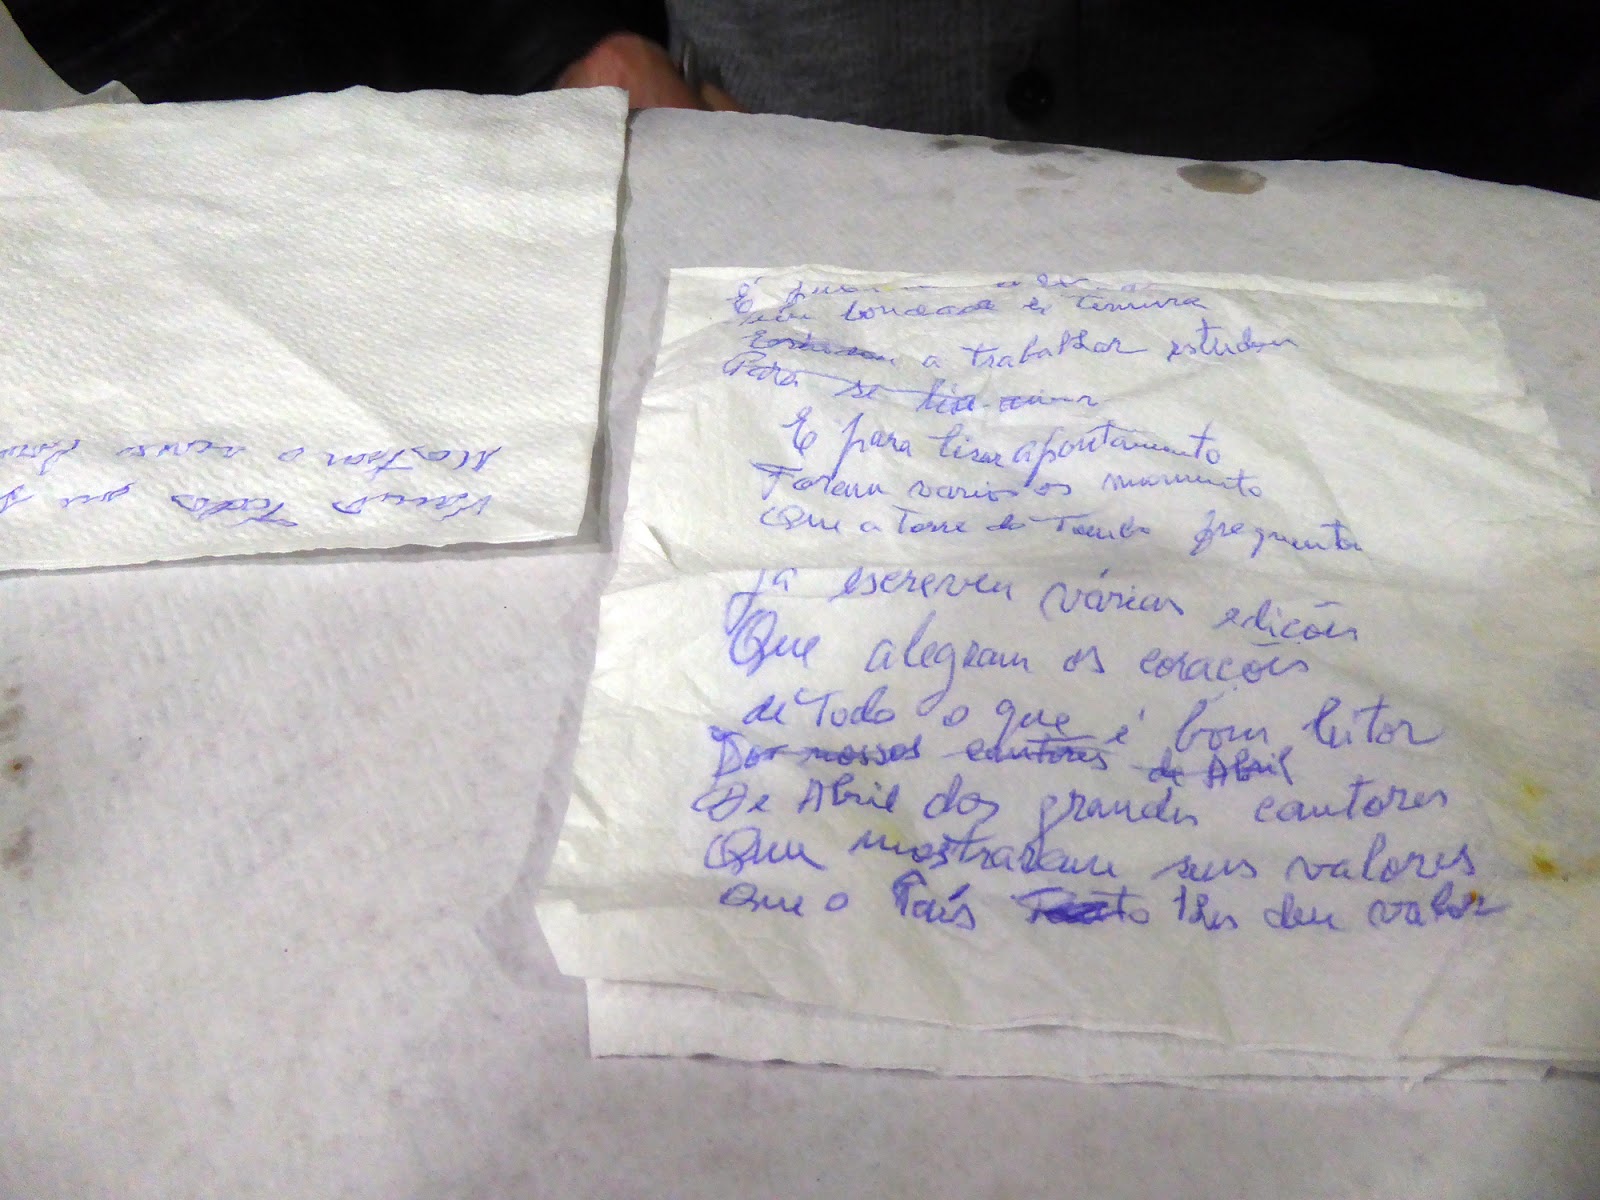 É
Com bondade e ternura
a trabalhar estudou
Para se
E para tirar apontamento
Foram varios os momento
Que a Torre do Tombo frequentou
Já escreveu várias edições
Que alegram os corações
de Todo o que é bom leitor
Dos nossos cantores de Abril
De Abril dos grandes cantores
Que mostraram seus valores
Que o País lhes deu valor
Vamos Todos
Mostrar o nosso